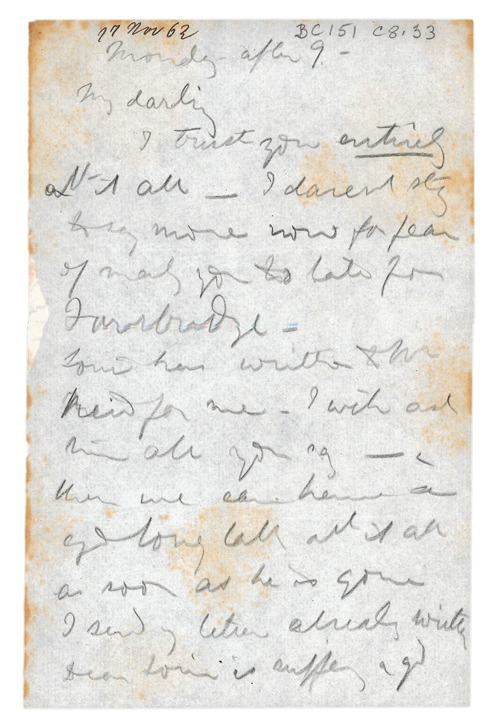 17 Nov 62 BC151 C8:33
Monday after 9 -
My darling
I trust you entirely
abt it all — I darent stay
to say more now for fear
of making you too late for
Louis has written
for me - I will ask
him all you say —
then we can have a
gd long talk abt it all
as soon as he is gone
I send yr letter already written
Dear Louis is suffering a gd